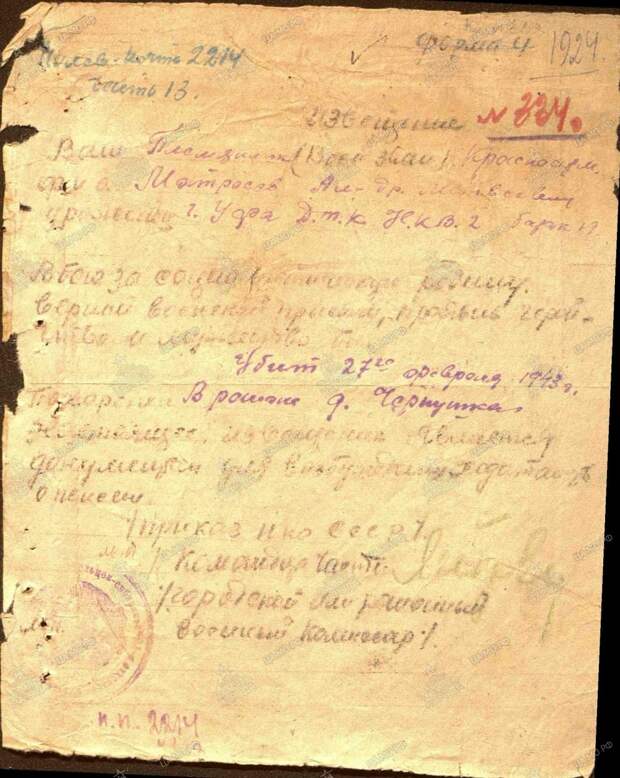 Полев. почта 2214
Часть 13.
Форма 4
1924
Извещение № 334.
Ваш Племяник (Воен. зван.) Красноарм.
Матросов Ал-др. Матвеевич
г. Уфа Д.т.к Н.К.В.Д барк 19
В бою за социалистическую родину.
верной военской присяги, проявив герой-
ство и мужество был
Убит 27го февраля 1943 г.
Похоронен В районе д. Чернушка
Настоящее извещение является
документом для возбуждения ходатайств
о пенсии.
/приказ НКО СССР
м.п. /Командир части.
/городской или районный
военный комиссар/.
м.п.
п.п. 2214